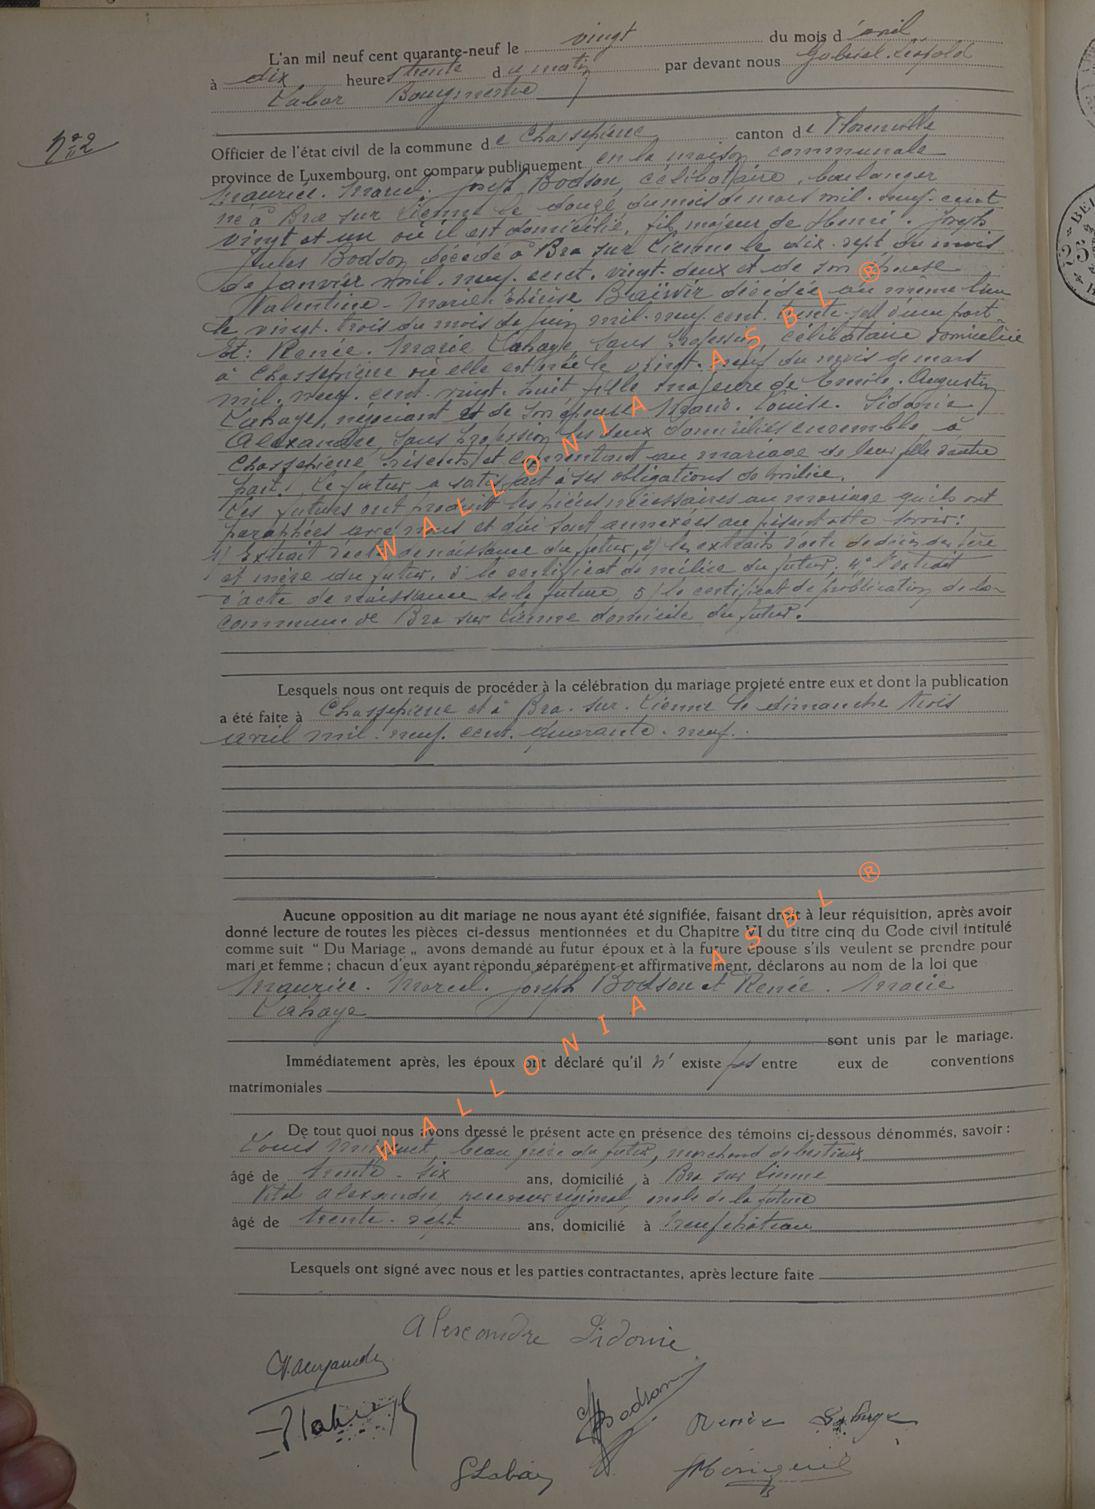 L'an mil neuf cent quarante-neuf le vingt du mois d'avril
à dix heures trente du matin par devant nous Gabriel-Léopold
Labar Bourgmestre
N° 2
Officier de l'état civil de la commune de Chassepierre canton de Florenville
province de Luxembourg, ont comparu publiquement en la maison communale
Maurice. Marcel. Joseph Bodson, célibataire, boulanger
né à Bra sur Lienne le douze du mois de mars mil. neuf. cent
vingt et un où il est domicilié, fils majeur de Henri. Joseph
Jules Bodson décédé à Bra sur Lienne le dix. sept du mois
de janvier mil. neuf. cent. vingt. deux et de son épouse
Valentine. Marie. Thérèse décédée au même lieu
le vingt. trois du mois de juin mil. neuf. cent. trente. sept d'une part.
Et: Renée. Marie Lahaye, sans profession, célibataire domiciliée
à Chassepierre où elle est née le vingt. du mois de mars
mil. neuf. cent. vingt. huit fille majeure de Emile. Augustin
Lahaye, négociant et de son épouse Louise. Sidonie
Alexandre, sans profession les deux domiciliés ensemble à
Chassepierre, présents et consentant au mariage de leur fille d'autre
part. Le futur a satisfait à ses obligations de milice.
Les futurs ont produit les pièces nécessaires au mariage qu'ils ont
paraphées avec nous et qui sont annexées au présent acte savoir:
1) Extrait d'acte de naissance du futur, 2) les extraits d'acte de décès des père
et mère du futur, 3° le certificat de milice du futur, 4° l'extrait
d'acte de naissance de la future, 5) le certificat de publication de la
commune de Bra sur Lienne domicile du futur.
Lesquels nous ont requis de procéder à la célébration du mariage projeté entre eux et dont la publication
a été faite à Chassepierre et à Bra. sur. Lienne le dimanche trois
avril mil. neuf. cent. quarante. neuf.
Aucune opposition au dit mariage ne nous ayant été signifiée, faisant droit à leur réquisition, après avoir
donné lecture de toutes les pièces ci-dessus mentionnées et du Chapitre VI du titre cinq du Code civil intitulé
comme suit “ Du Mariage „ avons demandé au futur époux et à la future épouse s'ils veulent se prendre pour
mari et femme ; chacun d'eux ayant répondu séparément et affirmativement, déclarons au nom de la loi que
Maurice. Marcel. Joseph Bodson et Renée. Marie
Lahaye
sont unis par le mariage.
Immédiatement après, les époux ont déclaré qu'il n'existe pas entre eux de conventions
matrimoniales
De tout quoi nous avons dressé le présent acte en présence des témoins ci-dessous dénommés, savoir :
Louis beau frère du futur, marchand de bestiaux
âgé de trente. six ans, domicilié à Bra sur Lienne
Vital Alexandre, receveur régional, oncle de la future
âgé de trente. sept ans, domicilié à Neufchâteau
Lesquels ont signé avec nous et les parties contractantes, après lecture faite
Alexandre Sidonie
Bodson
Renée Lahaye
GLabar
WALLONIA ASBL ®
WALLONIA ASBL ®